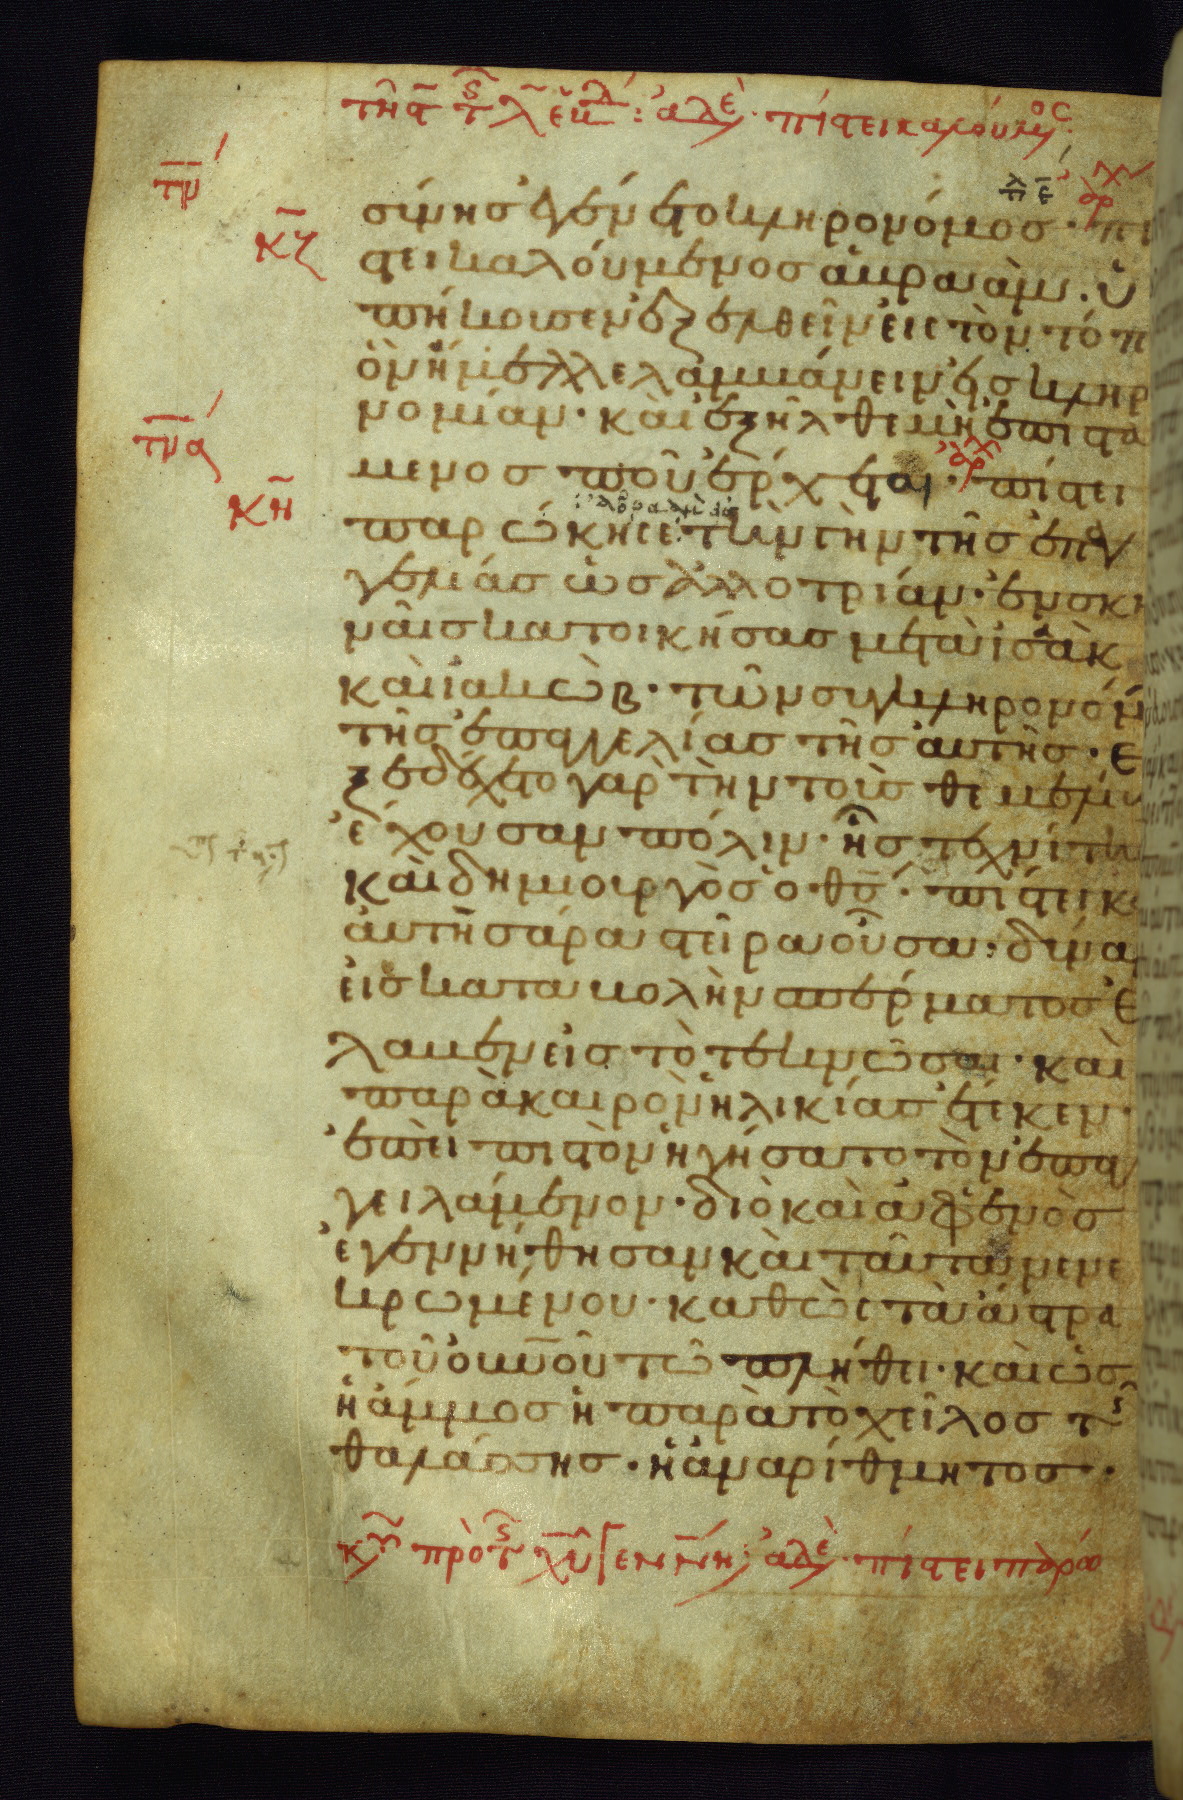 πίστει καλούμενος
τν
κζ
σύνης ἐγένετο κληρονόμος · πί
στει καλούμενος ἀβραὰμ · ὑ
πήκουσεν ἐξελθεῖν εἰς τὸν τόπ
ὃν ἤμελλε λαμβάνειν εἰς κληρ
νομίαν · καὶ ἐξῆλθε μὴ ἐπιστά
τνα
μενος ποῦ ἔρχεται · πίστει
κη
παρώκησεν εἰς τὴν γῆν τῆς ἐπαγ
γελίας ὡς ἀλλοτρίαν · ἐν σκη
ναῖς κατοικήσας μετὰ ἰσαὰκ
καὶ ἰακὼβ · τῶν συγκληρονόμ
τῆς ἐπαγγελίας τῆς αὐτῆς · ἐ
ξεδέχετο γὰρ τὴν τοὺς θεμελί
ἔχουσαν πόλιν · ἧς τεχνίτη
καὶ δημιουργὸς ὁ θς · πίστει κ
αὐτὴ σάρα στεῖρα οὖσα · δύναμ
εἰς καταβολὴν σπέρματος ἔ
λαβεν εἰς τὸ τεκνῶσαι · καὶ
παρὰ καιρὸν ἡλικίας ἔτεκεν ·
ἐπεὶ πιστὸν ἡγήσατο τὸν ἐπαγ
γειλάμενον · διὸ καὶ ἀφ ἑνὸς
ἐγεννήθησαν καὶ ταῦτα νενε
κρωμένου · καθὼς τὰ ἄστρα
τοῦ οὐνοῦ τῶ πλήθει · καὶ ὡς
ἡ ἄμμος ἡ παρὰ τὸ χεῖλος τῆς
θαλάσσης · ἡ ἀναρίθμητος ·
κυ πρὸ τῆς χυ γεννη · πίστει παρω